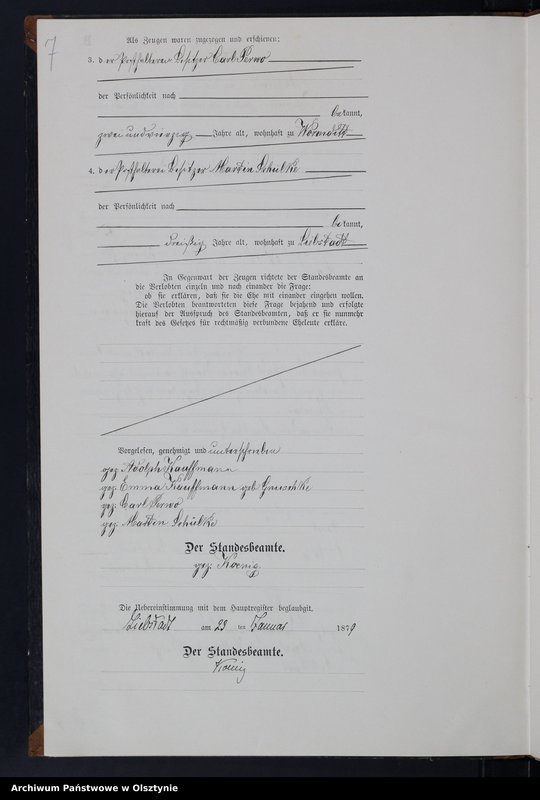 7
Als Zeugen waren zugezogen und erschienen:
3. der Posthalterei Besitzer Carl Perwo
der Persönlichkeit nach
bekannt,
zwei und vierzig Jahre alt, wohnhaft zu Wormditt
4. der Posthalterei Besitzer Martin Schülke
der Persönlichkeit nach
bekannt,
dreißig Jahre alt, wohnhaft zu Liebstadt
In Gegenwart der Zeugen richtete der Standesbeamte an
die Verlobten einzeln und nach einander die Frage:
ob sie erklären, daß sie die Ehe mit einander eingehen wollen.
Die Verlobten beantworteten diese Frage bejahend und erfolgte
hierauf der Ausspruch des Standesbeamten, daß er sie nunmehr
kraft des Gesetzes für rechtmäßig verbundene Eheleute erkläre.
Vorgelesen, genehmigt und unterschrieben
gez: Adolph Kauffmann
gez: Emma Kauffmann geb
gez: Carl Perwo
gez: Martin Schülke
Der Standesbeamte.
gez: Koenig.
Die Uebereinstimmung mit dem Hauptregister beglaubigt.
Liebstadt am 23 ten Januar 1879
Der Standesbeamte.
Koenig
Archiwum Państwowe w Olsztynie